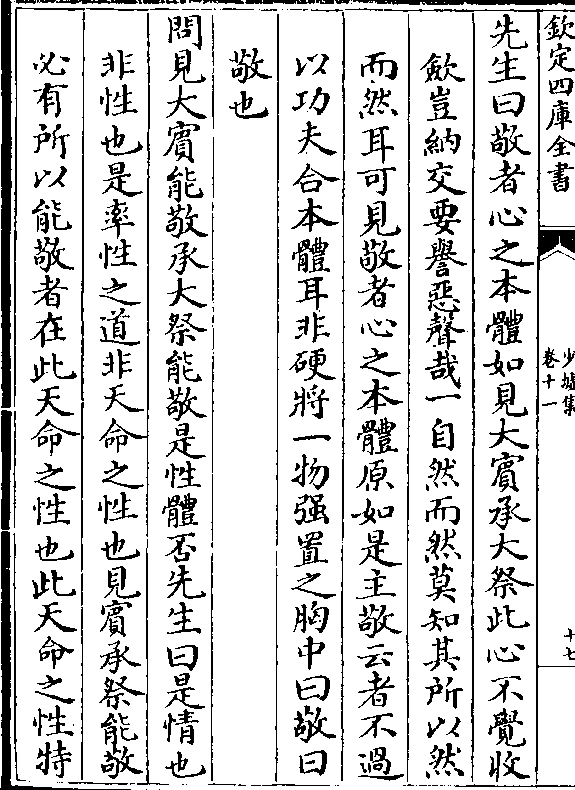 欽定四庫全書
少墟集
卷十一
十七
先生曰敬者心之本體如見大賓承大祭此心不覺收
歛豈納交要譽惡聲哉一自然而然莫知其所以然
而然耳可見敬者心之本體原如是主敬云者不過
以功夫合本體耳非硬將一物强置之胸中曰敬曰
敬也
問見大賓能敬承大祭能敬是性體否先生曰是情也
非性也是率性之道非天命之性也見賓承祭能敬
必有所以能敬者在此天命之性也此天命之性特